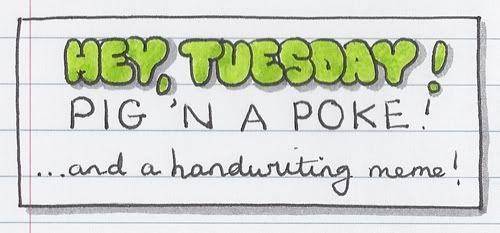 HEY, TUESDAY!
PIG 'N A POKE!
...and a handwriting meme!